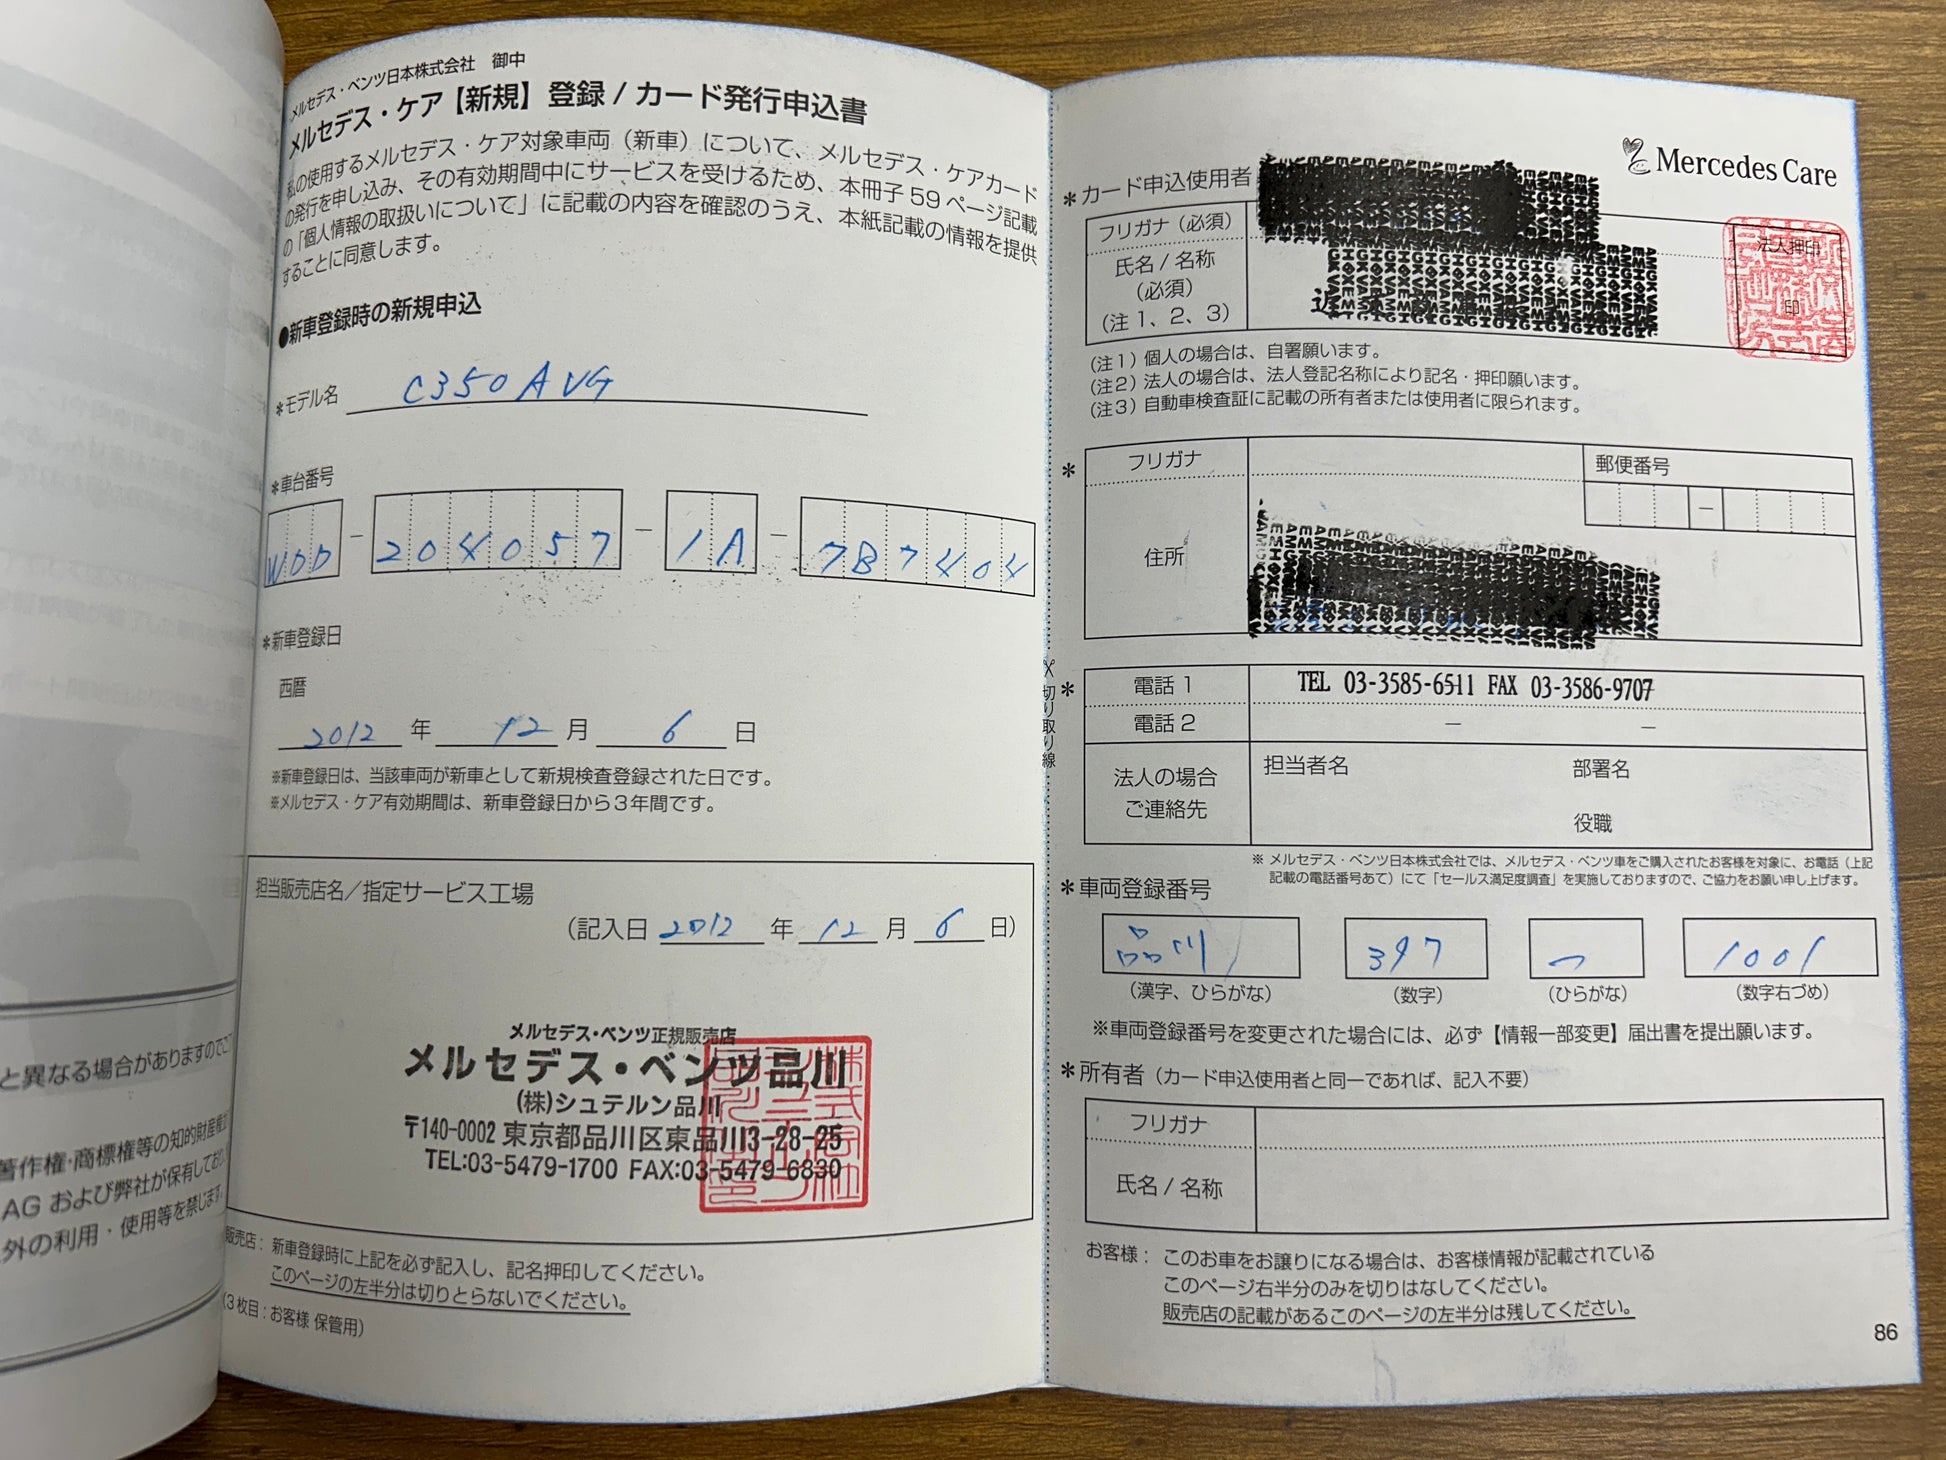 メルセデス・ベンツ日本株式会社　御中
メルセデス・ケア【新規】登録 / カード発行申込書
私の使用するメルセデス・ケア対象車両（新車）について、メルセデス・ケアカード
の発行を申し込み、その有効期間中にサービスを受けるため、本冊子 59 ページ記載
の「個人情報の取扱いについて」に記載の内容を確認のうえ、本紙記載の情報を提供
することに同意します。
●新車登録時の新規申込
＊モデル名 C350AVG
＊車台番号
WDD － 204057 － 1A － 7B7404
＊新車登録日
西暦
2012 年 12 月 6 日
※新車登録日は、当該車両が新車として新規検査登録された日です。
※メルセデス・ケア有効期間は、新車登録日から３年間です。
担当販売店名／指定サービス工場
（記入日 2012 年 12 月 6 日）
メルセデス・ベンツ正規販売店
メルセデス・ベンツ品川
(株)シュテルン品川
〒140-0002 東京都品川区東品川3-28-25
TEL:03-5479-1700 FAX:03-5479-6830
販売店： 新車登録時に上記を必ず記入し、記名押印してください。
このページの左半分は切りとらないでください。
（３枚目：お客様 保管用）
切り取り線
Mercedes Care
＊カード申込使用者
フリガナ（必須）
氏名 / 名称
（必須）
（注 1、2、3）
法人押印
印
（注１）個人の場合は、自署願います。
（注２）法人の場合は、法人登記名称により記名・押印願います。
（注３）自動車検査証に記載の所有者または使用者に限られます。
＊ フリガナ 郵便番号
－
住所
＊ 電話 1 TEL 03-3585-6511 FAX 03-3586-9707
電話 2 － －
法人の場合
ご連絡先
担当者名 部署名
役職
※ メルセデス・ベンツ日本株式会社では、メルセデス・ベンツ車をご購入されたお客様を対象に、お電話（上記
記載の電話番号あて）にて「セールス満足度調査」を実施しておりますので、ご協力をお願い申し上げます。
＊車両登録番号
品川 397 つ 1001
（漢字、ひらがな） （数字） （ひらがな） （数字右づめ）
※車両登録番号を変更された場合には、必ず【情報一部変更】届出書を提出願います。
＊所有者（カード申込使用者と同一であれば、記入不要）
フリガナ
氏名 / 名称
お客様： このお車をお譲りになる場合は、お客様情報が記載されている
このページ右半分のみを切りはなしてください。
販売店の記載があるこのページの左半分は残してください。
86
と異なる場合がありますので
著作権・商標権等の知的財産権
AG および弊社が保有して
外の利用・使用等を禁じます。